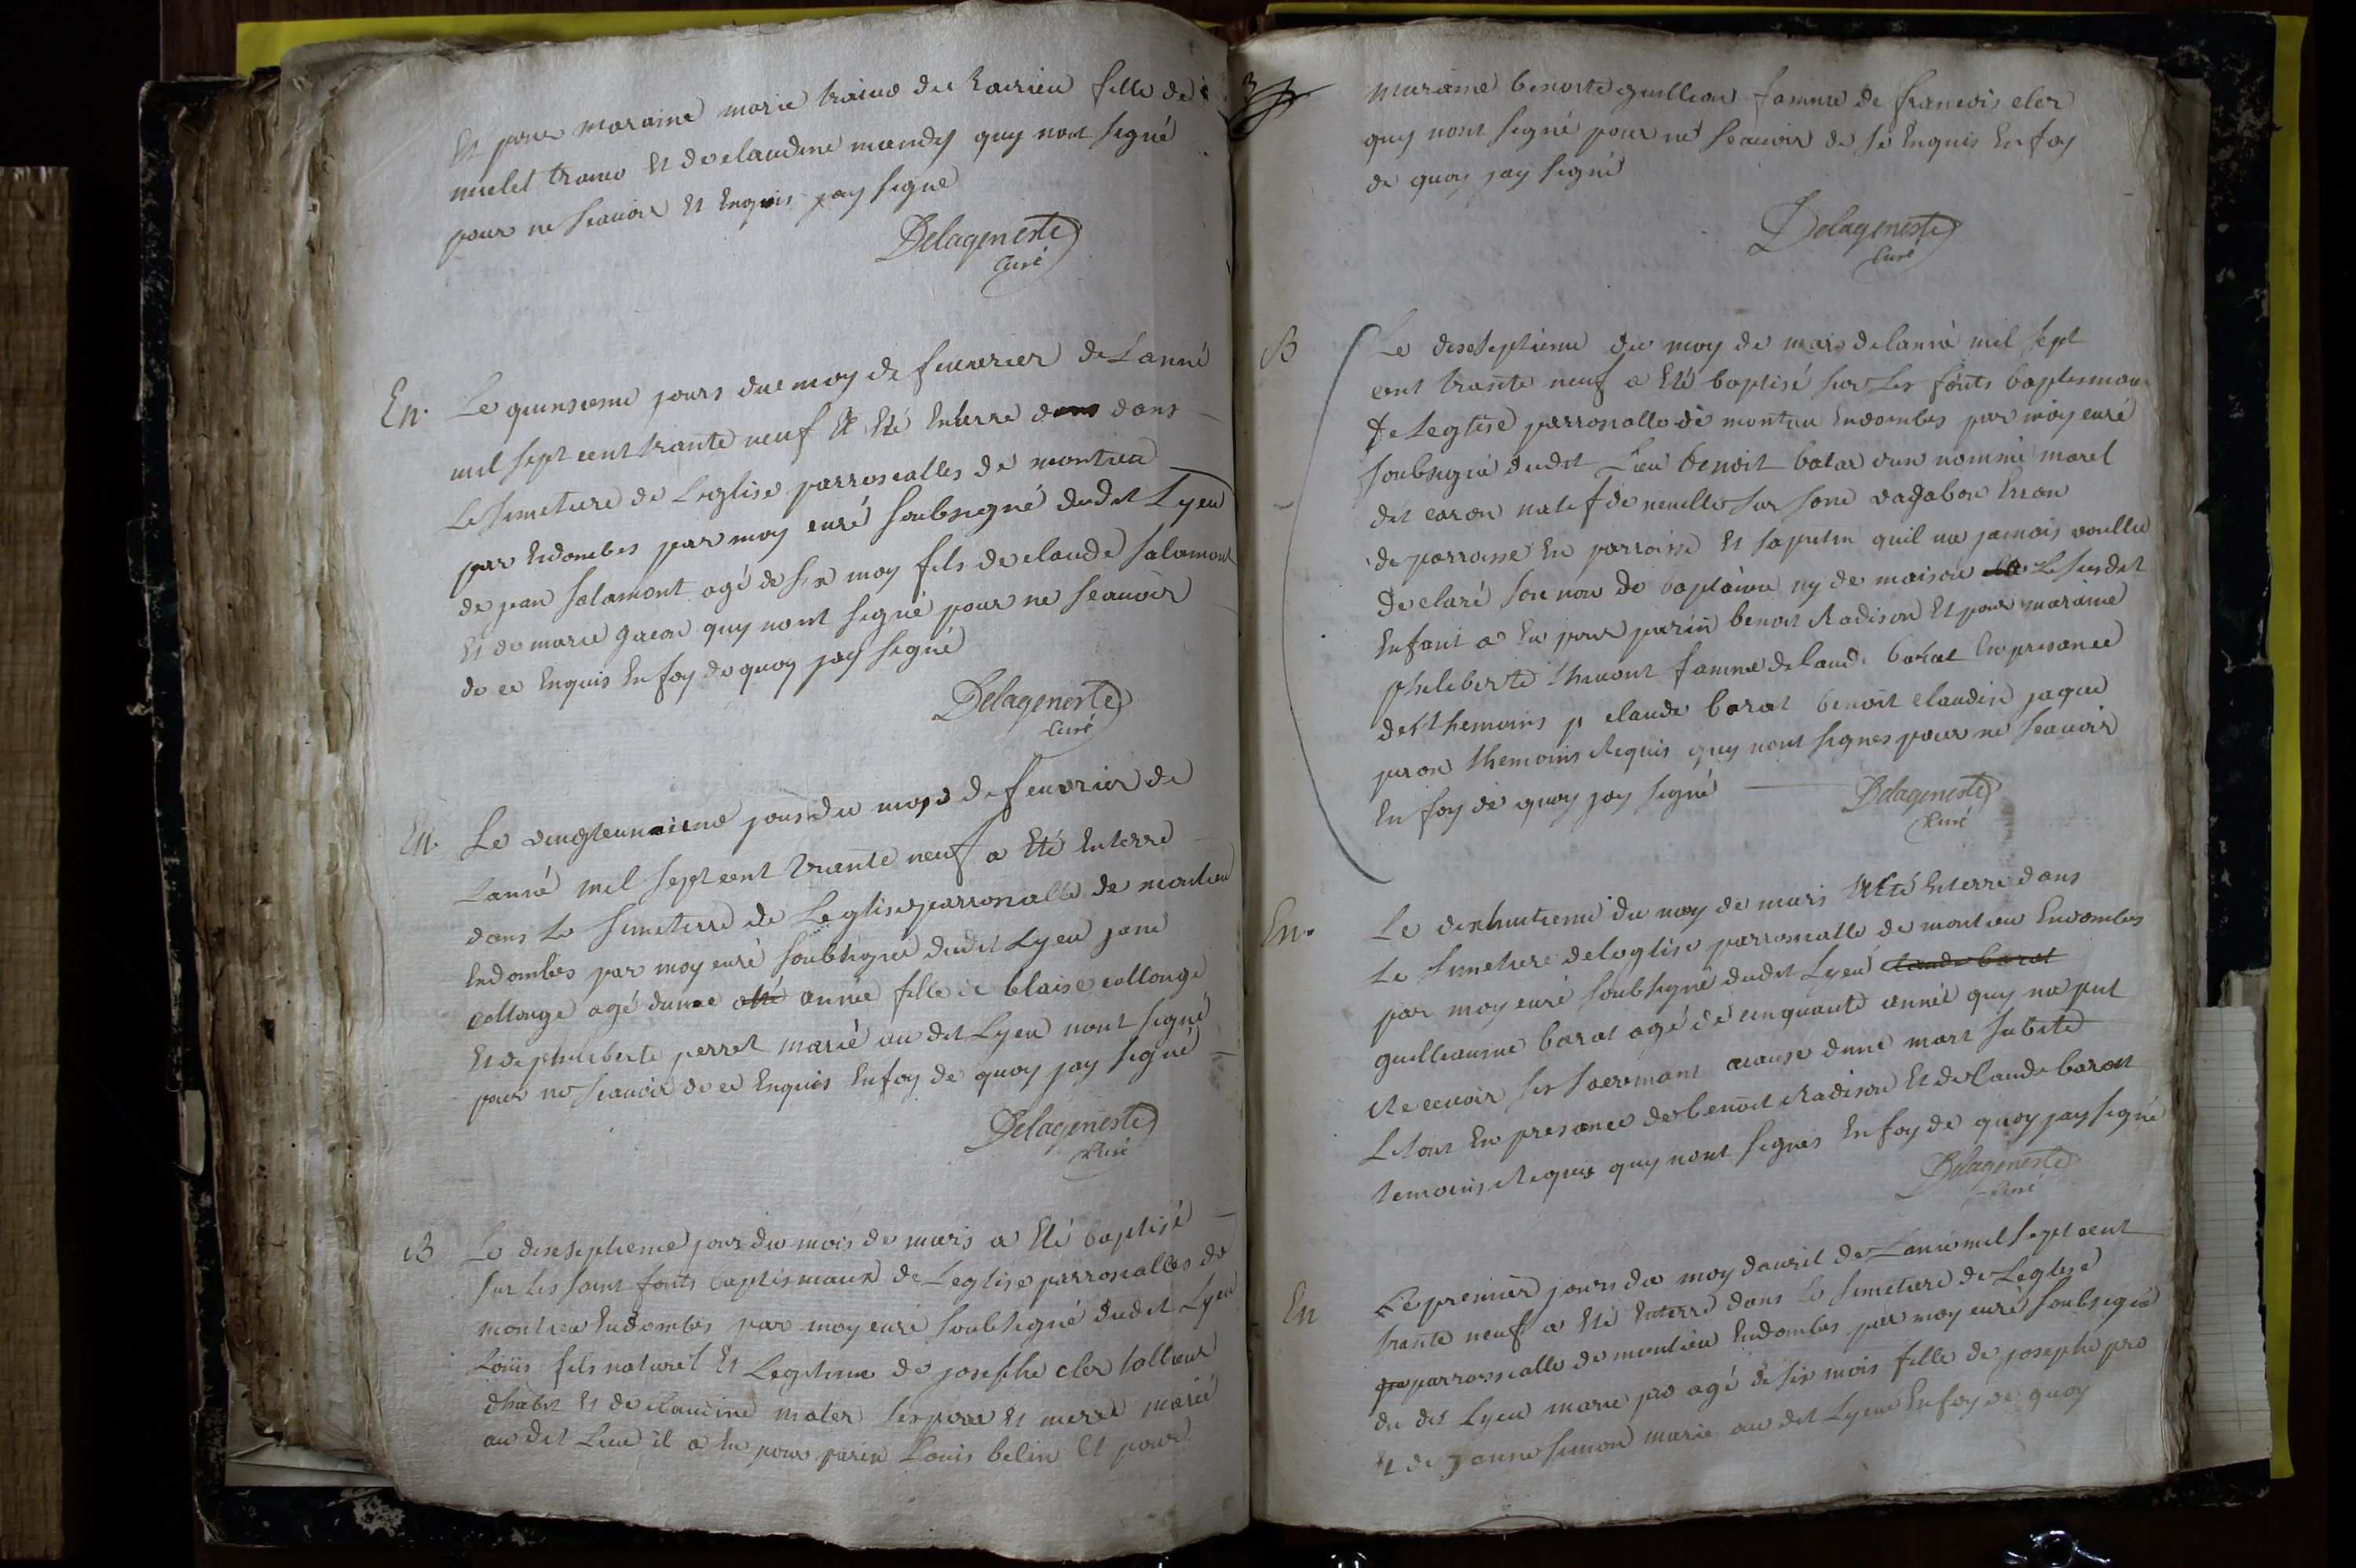 Et pour maraine marie traine du Rairieu fille de
miclet traine Et de claudine mendy quy nont signé
pour ne scauoir Et Enquis jay signe
Delageneste
Curé
En. Le quinsieme jours due moy de feuurier de Lanné
mil sept cent trante neuf Et Eté Enterre dans
Le simetiere de Leglise parroscialles de montieu
par Endombes par moy curé soubsigné dudit Lyeu
de jean salamont agé de six moy fils de claude salamont
Et de marie gacon quy nont signé pour ne scauoir
de ce Enquis En foy de quoy jay signé
Delageneste
Curé
En. Le vingteunieme jour du moys de feuvrier de
Lanné mil sept cent trante neuf a Eté Enterré
dans Le simetiere de Leglise parrosialle de montieu
Endombes par moy curé soubsigné dudit Lyeu jane
collonge agé dunne année fille de blaise collonge
Et de philiberte perret marié au dit Lyeu nont signé
pour ne scauoir de ce Enquis En foy de quoy jay signé
Delageneste
Curé
B Le diseseptieme jour du mois de mars a Eté baptisé
sur les saint fonts baptismaux de Leglise parroscialles de
montieu Endombes par moy curé soubsigné dudit Lyeu
Loüis fils naturel Et Legitime de josephe cler tallieur
dhabit Et de claudine mater ses pere Et merre marié
au dit Lieu il a Eu pour parin Louis belin Et pour
3
maraine benoite guillion famme de francois cler
quy nont signé pour ne scauoir de se Enquis En foy
de quoy jay signé
Delageneste
Curé
B Le diseseptieme du moy de mars delanné mil sept
cent trante neuf a Eté baptisé sur Les fonts baptismau
de Leglise parrosialle de montieu Endombes par moy curé
soubsigné dudit Lieu benoit batar dun nommé morel
dit caron natif de neuille sur sone vagabon Eran
de parroisse En parroisse Et saputin quil na jamais voullu
declaré son nom de baptaime ny de maison Le susdit
Enfant a Eu pour parin benoit Radison Et pour maraine
pheleberte thevont famme de claude barat En presance
des themoins claude barat benoit claudin jaque
peron themoins Requis quy nont signes pour ne scauoir
En foy de quoy jay signé
Delageneste
Curé
En. Le dixhuitieme du moy de mars Eté Enterre dans
Le simetiere de leglise parrossialle de montieu Endombes
par moy curé soubsigné dudit Lyeu claude barat
guilleaume barat agé de cinquante année quy na put
Recevoir ses sacremant acause dune mort subite
Le tout En presance de benoit Radison Et de claude barat
temoins Requis quy nont signés En foy de quoy jay signé
Delageneste
Curé
En Le premier jours du moy dauril de Lanné mil sept cent
trante neuf a Eté Enterré dans Le simetiere de Leglise
parrosscialle de montieu Endombes par moy curé soubsigné
du dit Lyeu marie pro agé de six mois fille de josephe pro
Et de Janne simon marie au dit Lyeu En foy de quoy